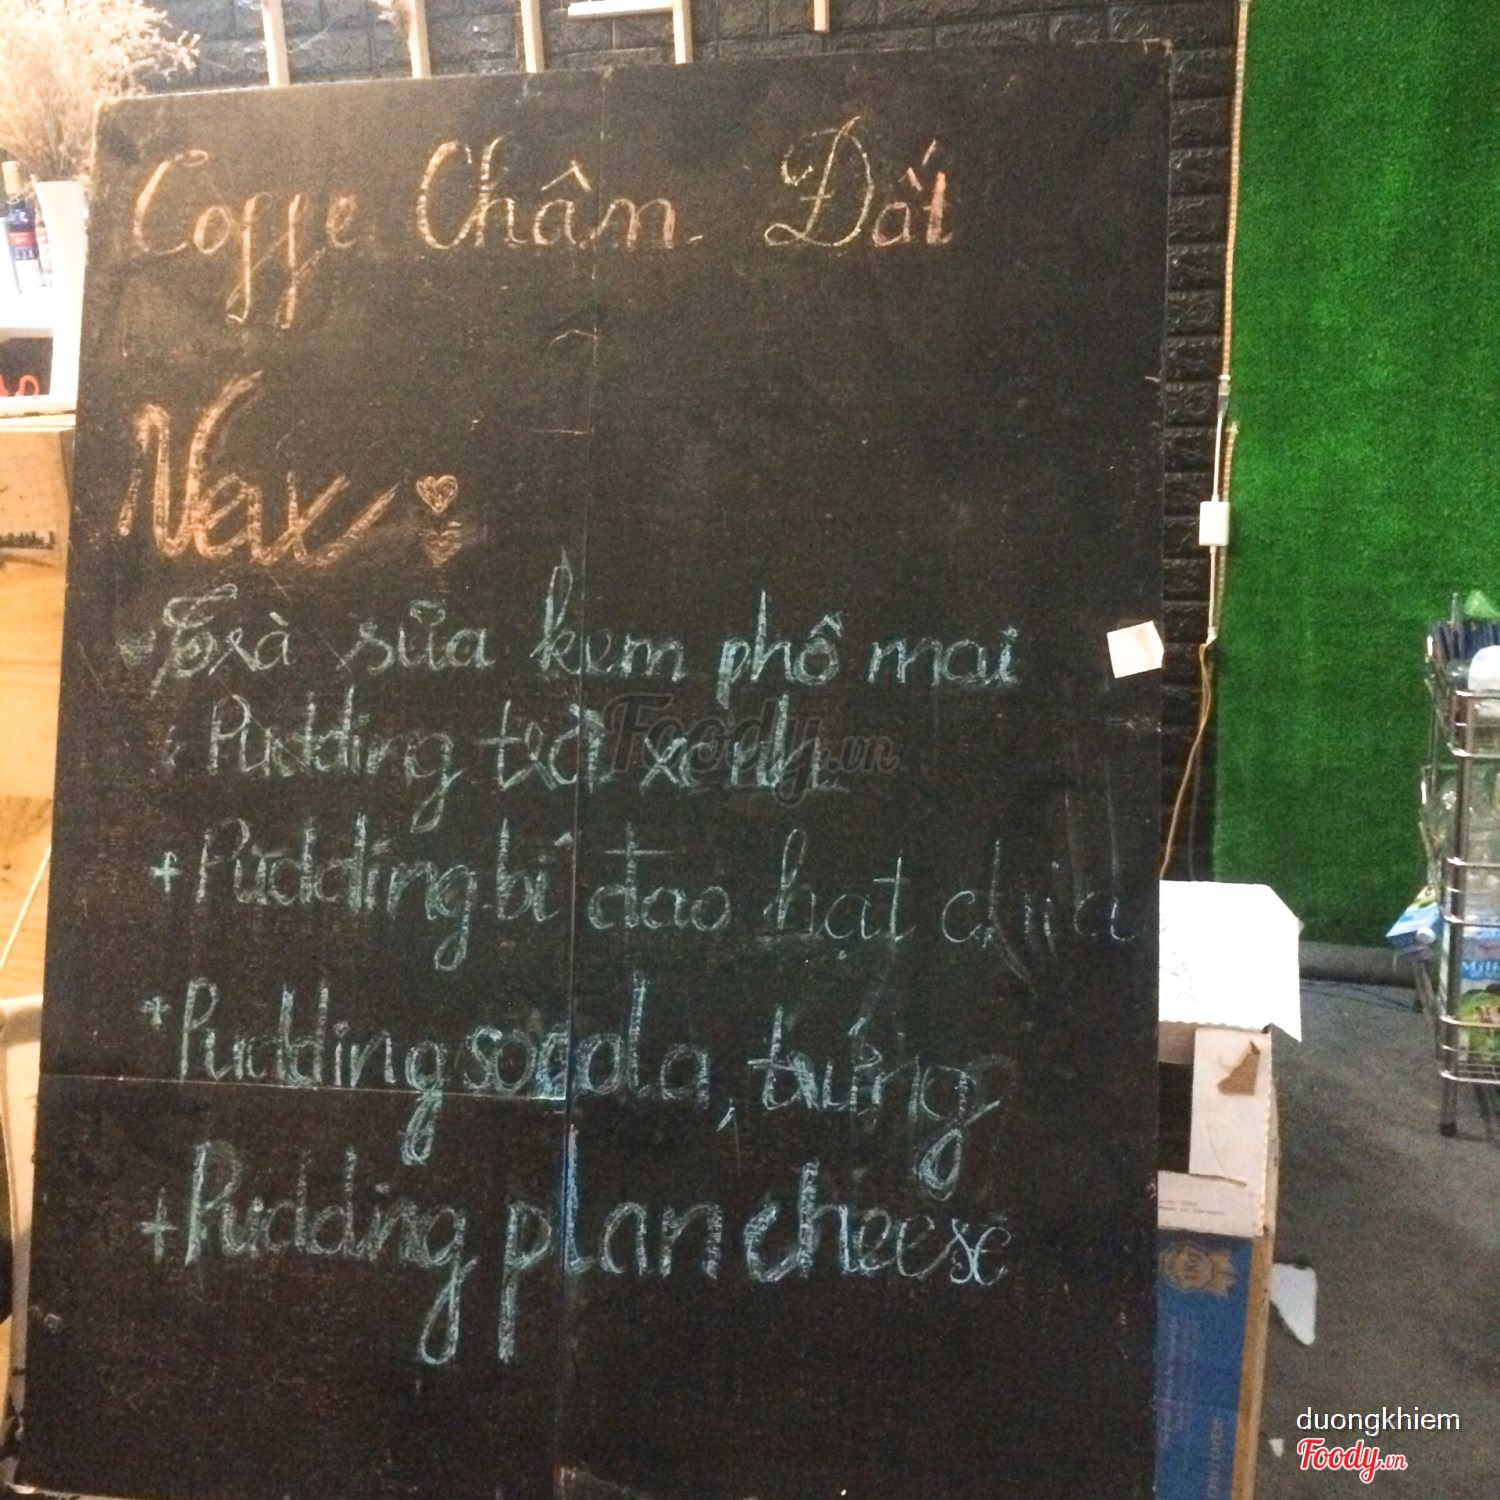 Coffe Chân Đất
New
Trà sữa kem phô mai
Pudding trà xanh
+ Pudding bí đao hạt chia
* Pudding socola, trứng
+ Pudding plan cheese
Foody.vn
duongkhiem
Foody.vn